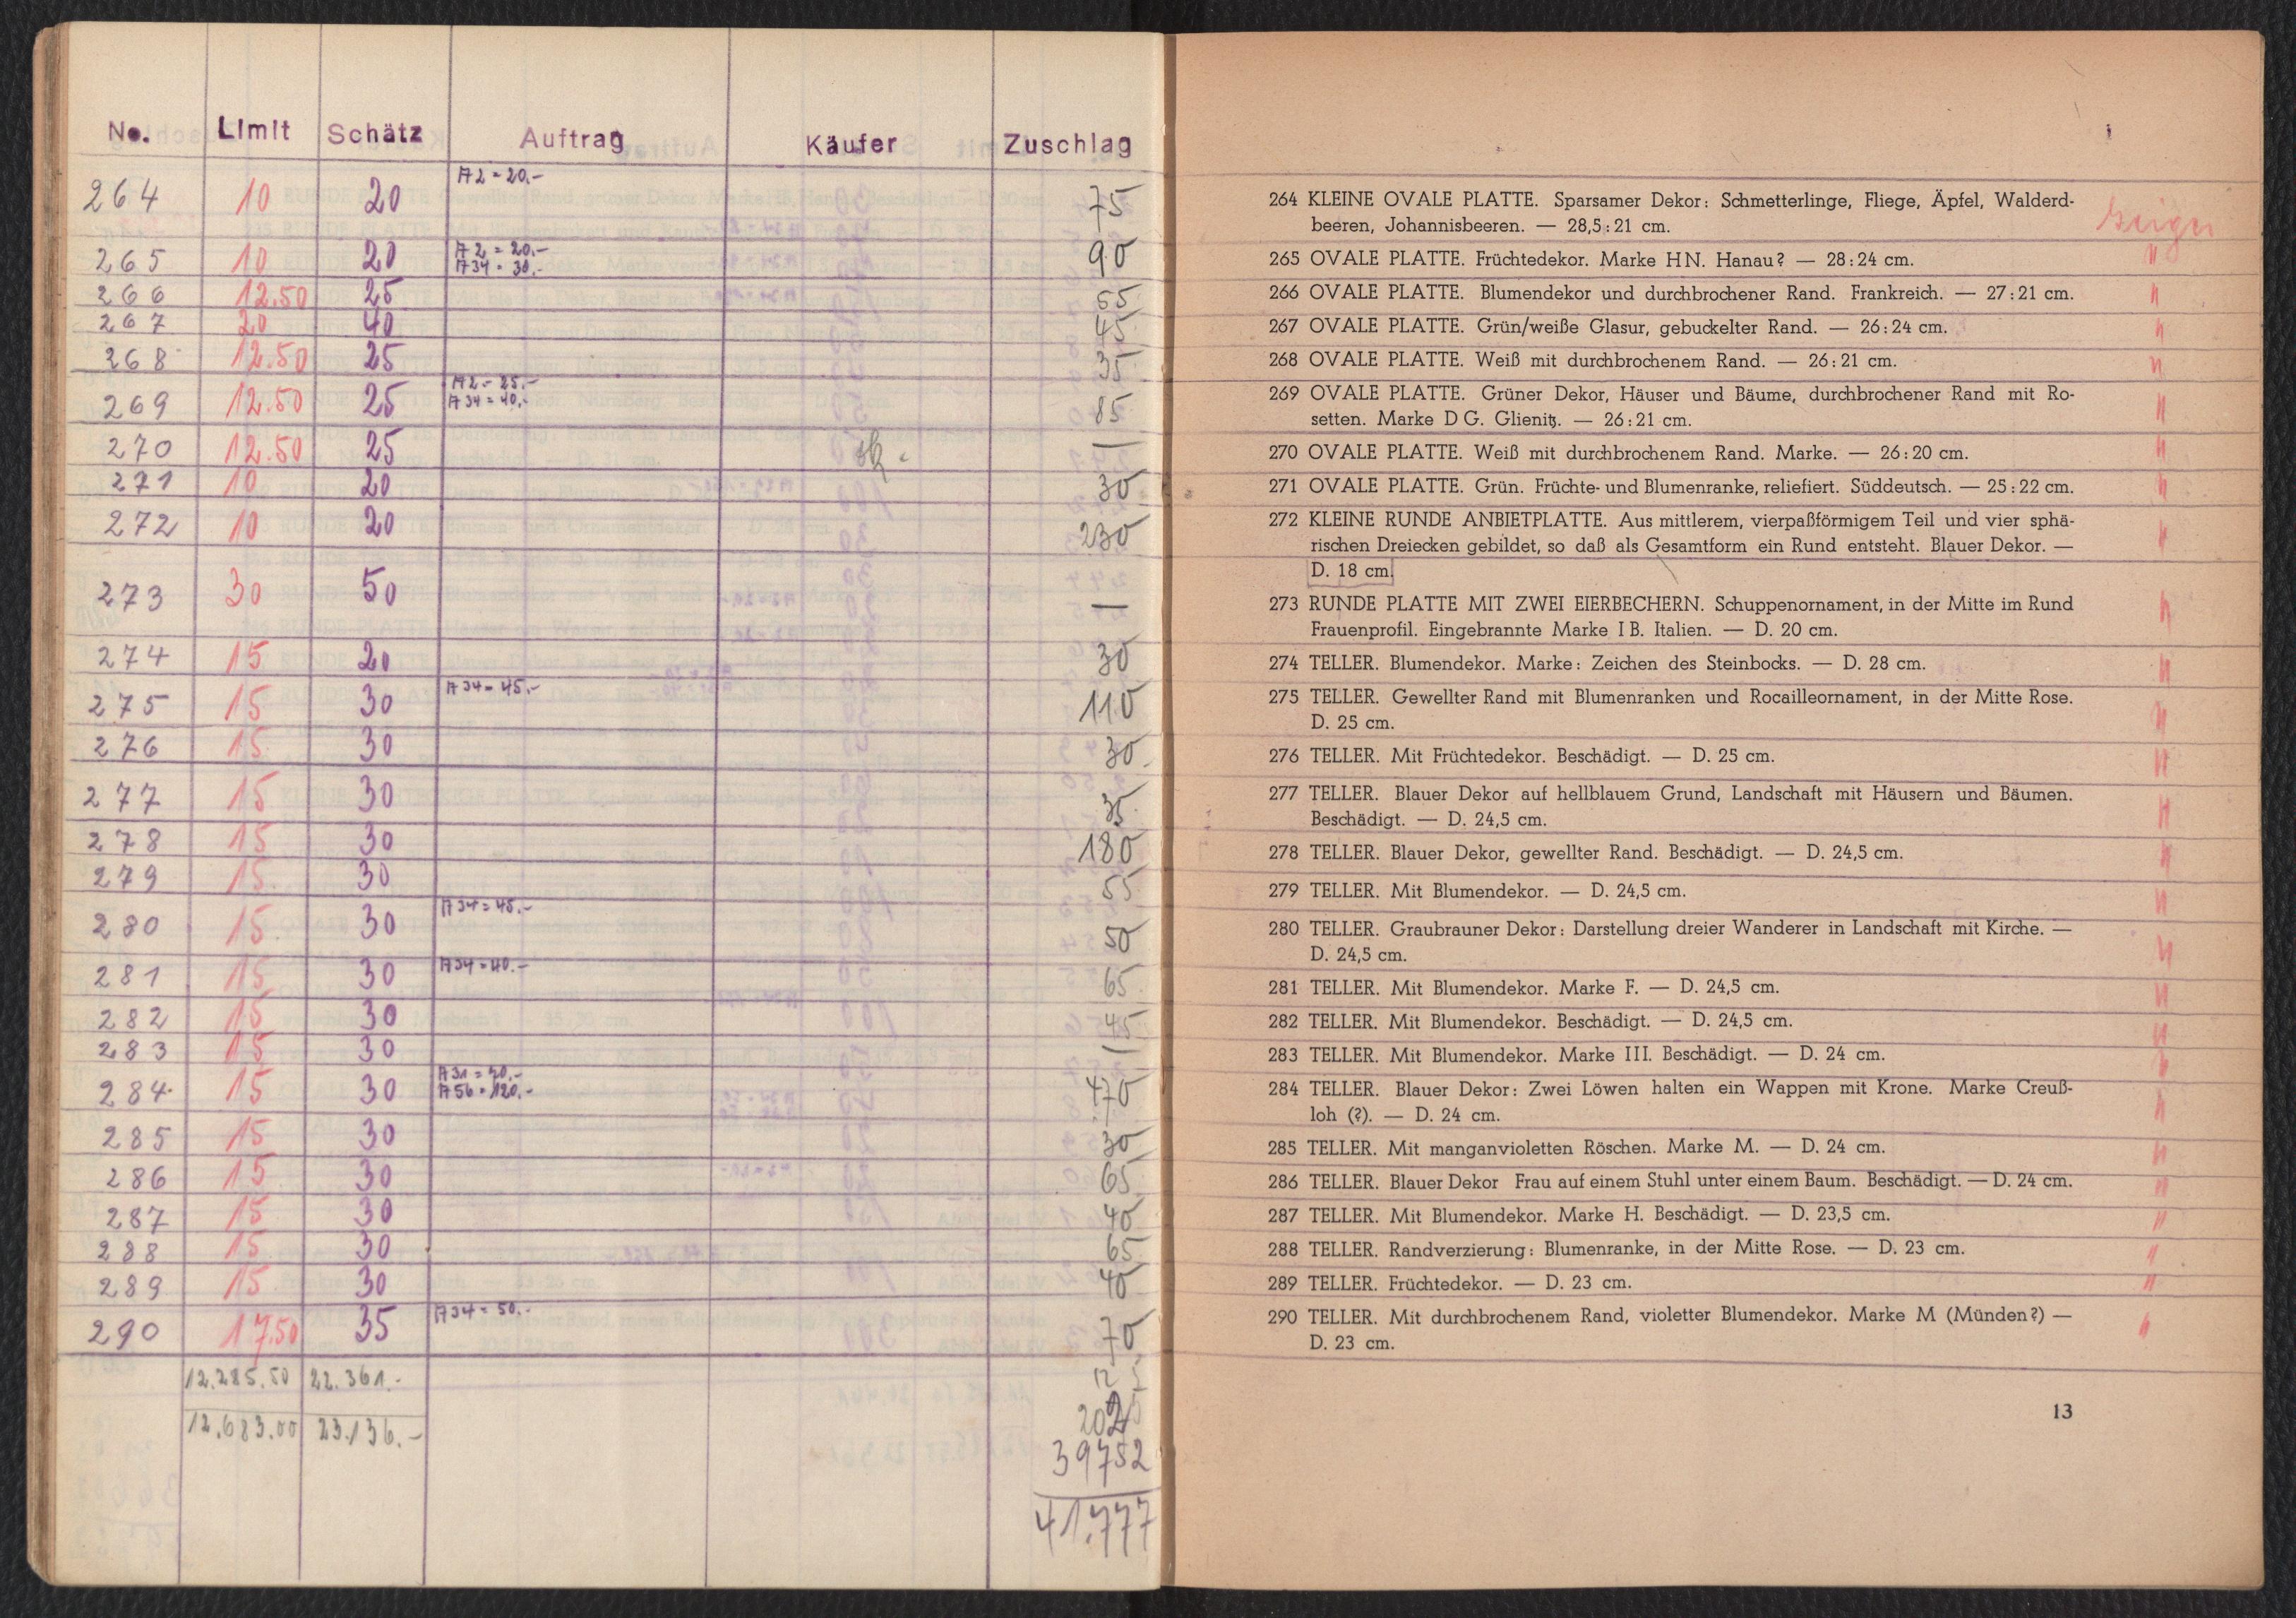 No. Limit Schätz Auftrag Käufer Zuschlag
264 10 20 A2 = 20.- 75
265 10 20 A2 = 20.- 90
A34 = 30.-
266 12.50 25 55
267 20 40 45
268 12.50 25 35
269 12.50 25 A2 = 25.- 85
A34 = 40.-
270 12.50 25 —
271 10 20 30
272 10 20 230
273 30 50 —
274 15 20 30
275 15 30 A34 = 45.- 110
276 15 30 30
277 15 30 35
278 15 30 180
279 15 30 55
280 15 30 A34 = 45.- 50
281 15 30 A34 = 40.- 65
282 15 30 45
283 15 30 —
284 15 30 A31 = 70.- 470
A56 = 120.-
285 15 30 30
286 15 30 65
287 15 30 40
288 15 30 65
289 15 30 40
290 17.50 35 A34 = 50.- 70
12.285.50 22.361.-
12.683.00 23.136.-
39752
41.777
264 KLEINE OVALE PLATTE. Sparsamer Dekor: Schmetterlinge, Fliege, Äpfel, Walderd-
beeren, Johannisbeeren. — 28,5 : 21 cm. Geiger
265 OVALE PLATTE. Früchtedekor. Marke HN. Hanau? — 28 : 24 cm. "
266 OVALE PLATTE. Blumendekor und durchbrochener Rand. Frankreich. — 27 : 21 cm. "
267 OVALE PLATTE. Grün/weiße Glasur, gebuckelter Rand. — 26 : 24 cm. "
268 OVALE PLATTE. Weiß mit durchbrochenem Rand. — 26 : 21 cm. "
269 OVALE PLATTE. Grüner Dekor, Häuser und Bäume, durchbrochener Rand mit Ro-
setten. Marke D G. Glienitz. — 26 : 21 cm. "
270 OVALE PLATTE. Weiß mit durchbrochenem Rand. Marke. — 26 : 20 cm. "
271 OVALE PLATTE. Grün. Früchte- und Blumenranke, reliefiert. Süddeutsch. — 25 : 22 cm. "
272 KLEINE RUNDE ANBIETPLATTE. Aus mittlerem, vierpaßförmigem Teil und vier sphä-
rischen Dreiecken gebildet, so daß als Gesamtform ein Rund entsteht. Blauer Dekor. — "
D. 18 cm.
273 RUNDE PLATTE MIT ZWEI EIERBECHERN. Schuppenornament, in der Mitte im Rund "
Frauenprofil. Eingebrannte Marke I B. Italien. — D. 20 cm.
274 TELLER. Blumendekor. Marke: Zeichen des Steinbocks. — D. 28 cm. "
275 TELLER. Gewellter Rand mit Blumenranken und Rocailleornament, in der Mitte Rose.
D. 25 cm. "
276 TELLER. Mit Früchtedekor. Beschädigt. — D. 25 cm. "
277 TELLER. Blauer Dekor auf hellblauem Grund, Landschaft mit Häusern und Bäumen.
Beschädigt. — D. 24,5 cm. "
278 TELLER. Blauer Dekor, gewellter Rand. Beschädigt. — D. 24,5 cm. "
279 TELLER. Mit Blumendekor. — D. 24,5 cm. "
280 TELLER. Graubrauner Dekor: Darstellung dreier Wanderer in Landschaft mit Kirche. —
D. 24,5 cm. "
281 TELLER. Mit Blumendekor. Marke F. — D. 24,5 cm. "
282 TELLER. Mit Blumendekor. Beschädigt. — D. 24,5 cm. "
283 TELLER. Mit Blumendekor. Marke III. Beschädigt. — D. 24 cm. "
284 TELLER. Blauer Dekor: Zwei Löwen halten ein Wappen mit Krone. Marke Creuß-
loh (?). — D. 24 cm. "
285 TELLER. Mit manganvioletten Röschen. Marke M. — D. 24 cm. "
286 TELLER. Blauer Dekor Frau auf einem Stuhl unter einem Baum. Beschädigt. — D. 24 cm. "
287 TELLER. Mit Blumendekor. Marke H. Beschädigt. — D. 23,5 cm. "
288 TELLER. Randverzierung: Blumenranke, in der Mitte Rose. — D. 23 cm. "
289 TELLER. Früchtedekor. — D. 23 cm. "
290 TELLER. Mit durchbrochenem Rand, violetter Blumendekor. Marke M (Münden?) — "
D. 23 cm.
13